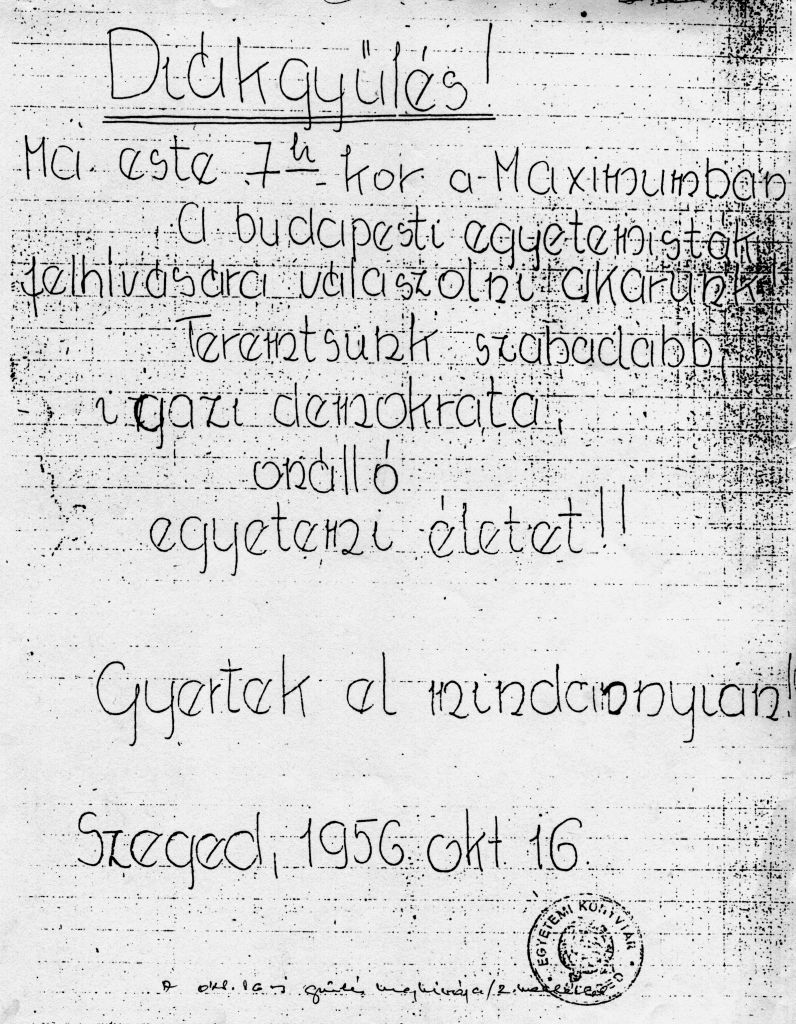 Diákgyülés!
Ma este 7 h-kor a Maximumban
A budapesti egyetemisták
felhivására válaszolni akarunk!
Teremtsünk szabadabb,
igazi demokrata,
onálló
egyetemi életet!!
Gyertek el mindannyian!
Szeged, 1956 okt 16.
EGYETEMI KÖNYVTÁR • SZEGED •
A okt. 16-i gyűlés meghívója/2.